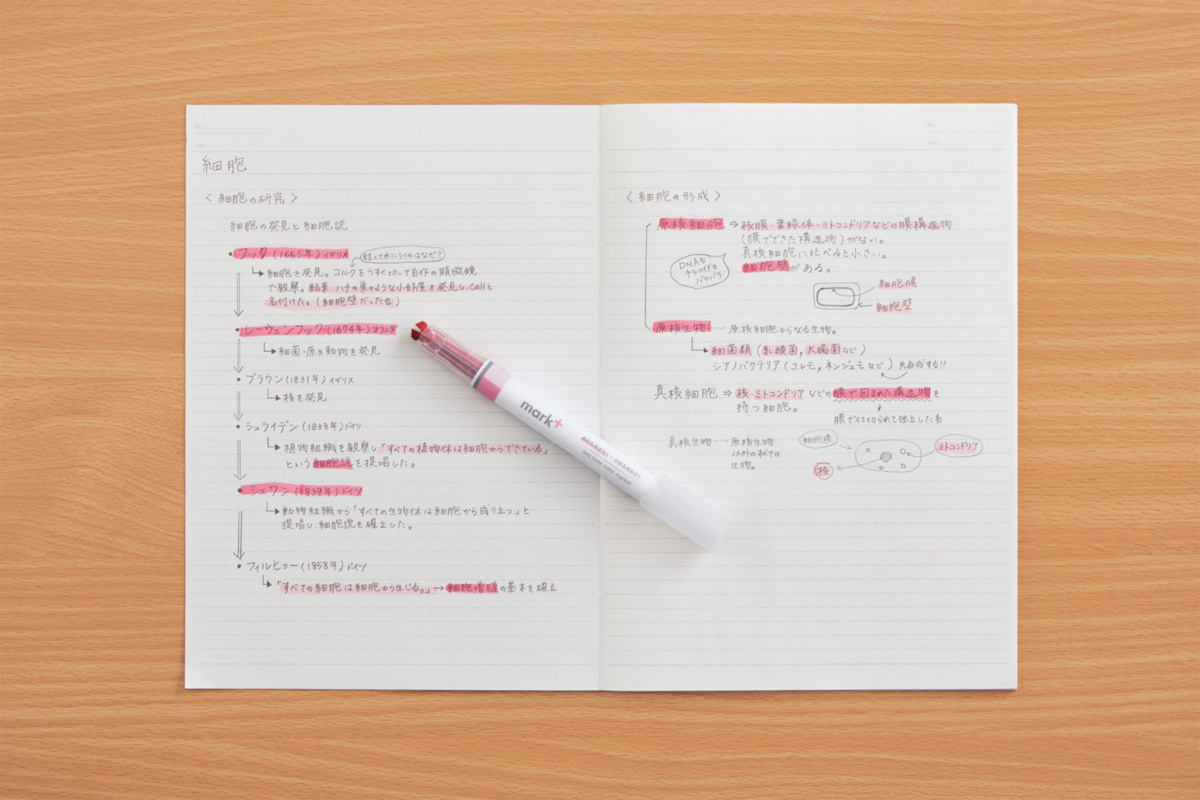 細胞
〈細胞の研究〉
細胞の発見と細胞説
・フック(1665年)イギリス
軽くて水にうくのはなぜ?
細胞を発見。コルクをうすく切って自作の顕微鏡
で観察。結果、ハチの巣のような小部屋を発見し、cellと
名付けた。(細胞壁だった)
・レーウェンフック(1674年)オランダ
細菌・原生動物を発見
・ブラウン(1831年)イギリス
核を発見
・シュライデン(1838年)ドイツ
植物組織を観察し「すべての植物体は細胞からできている」
という細胞説を提唱した。
・シュワン(1839年)ドイツ
動物組織から「すべての生物体は細胞から成り立つ」と
提唱し、細胞説を確立した。
・フィルヒョー(1858年)ドイツ
「すべての細胞は細胞から生じる。」→細胞増殖の基本を確立
mark+
two tone color marker
〈細胞の形成〉
原核細胞⇒核膜・葉緑体・ミトコンドリアなどの膜構造物
(膜でできた構造物)がない。
真核細胞に比べると小さい。
細胞壁がある。
DNAも
チラコイドも
バラバラ
細胞膜
細胞壁
原核生物……原核細胞からなる生物。
細菌類(乳酸菌,大腸菌など)
シアノバクテリア(ユレモ,ネンジュモなど)光合成する!!
真核細胞⇒核・ミトコンドリアなどの膜で囲まれた構造物を
持つ細胞。
膜で仕切られて独立した
真核生物……原核生物
以外のすべての
生物。
細胞膜
ミトコンドリア
核